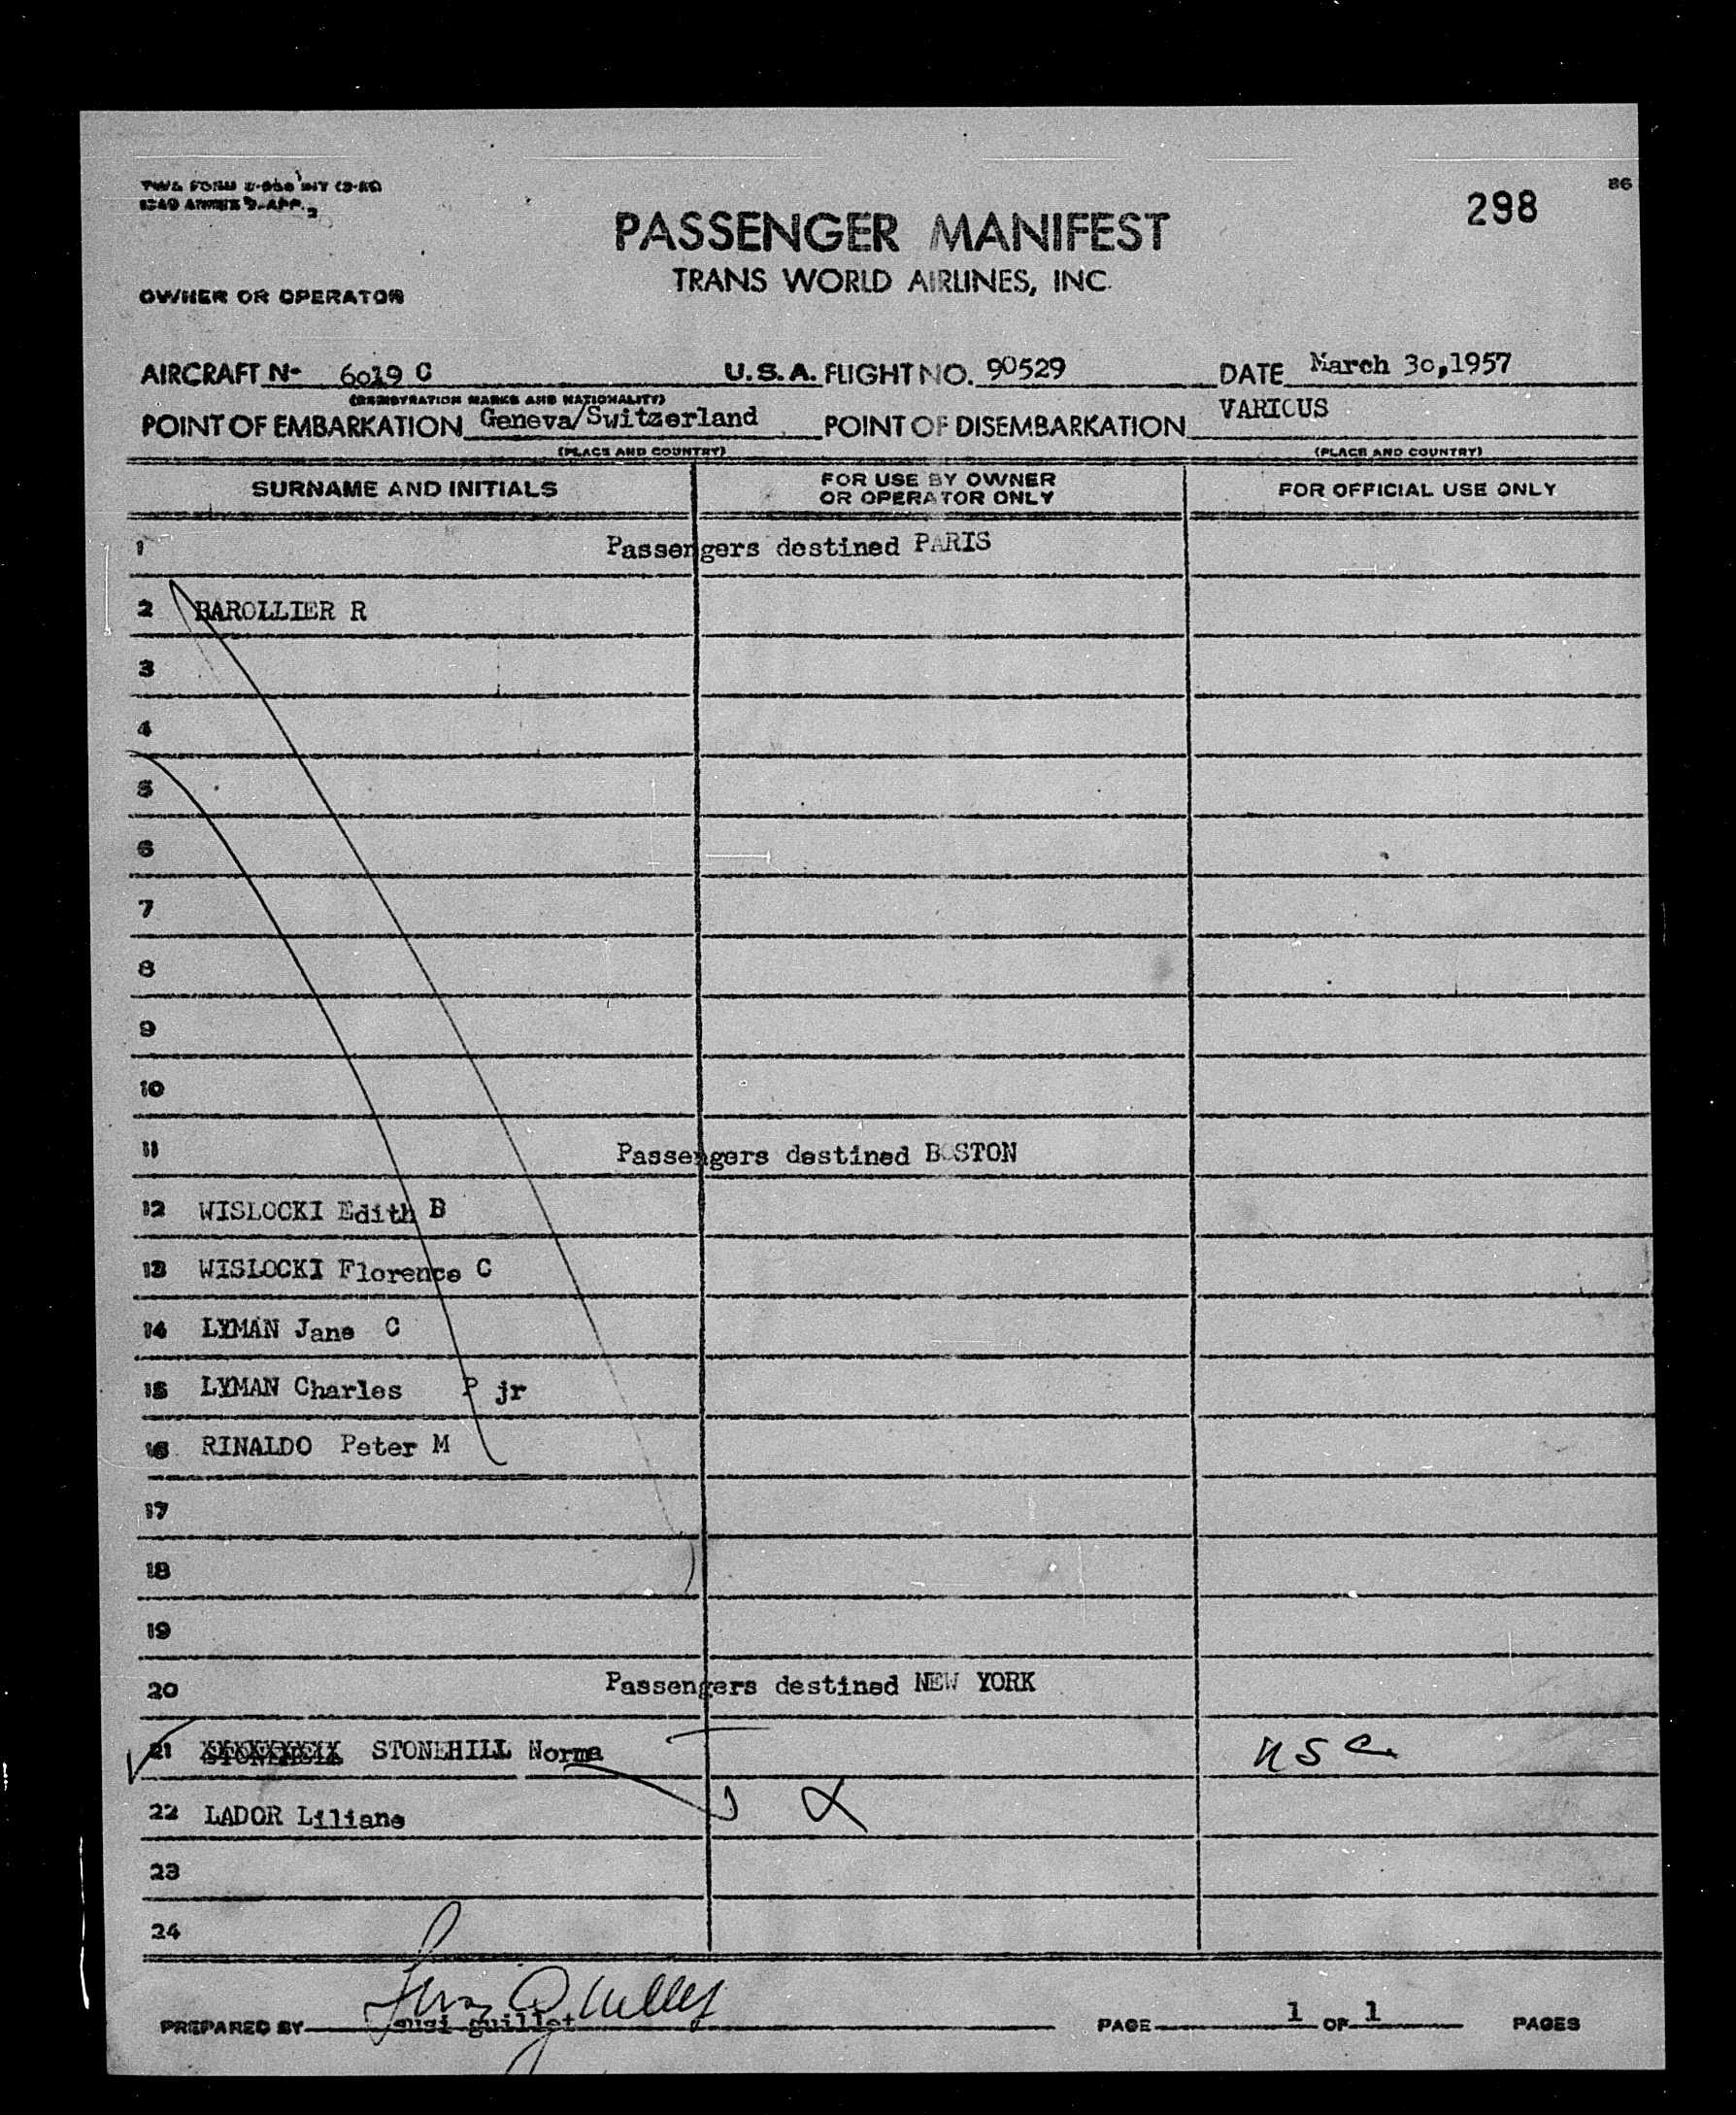 86
298
PASSENGER MANIFEST
TRANS WORLD AIRLINES, INC.
OWNER OR OPERATOR
AIRCRAFT N- 6019 C U.S.A. FLIGHT NO. 90529 DATE March 30,1957
(REGISTRATION MARKS AND NATIONALITY)
POINT OF EMBARKATION Geneva/Switzerland POINT OF DISEMBARKATION VARIOUS
(PLACE AND COUNTRY) (PLACE AND COUNTRY)
SURNAME AND INITIALS FOR USE BY OWNER OR OPERATOR ONLY FOR OFFICIAL USE ONLY
1 Passengers destined PARIS
2 BAROLLIER R
3
4
5
6
7
8
9
10
11 Passengers destined BOSTON
12 WISLOCKI Edith B
13 WISLOCKI Florence C
14 LYMAN Jane C
15 LYMAN Charles P jr
16 RINALDO Peter M
17
18
19
20 Passengers destined NEW YORK
21 STONEHILL Norma
22 LADOR Liliane
23
24
PREPARED BY susi guillet PAGE 1 OF 1 PAGES